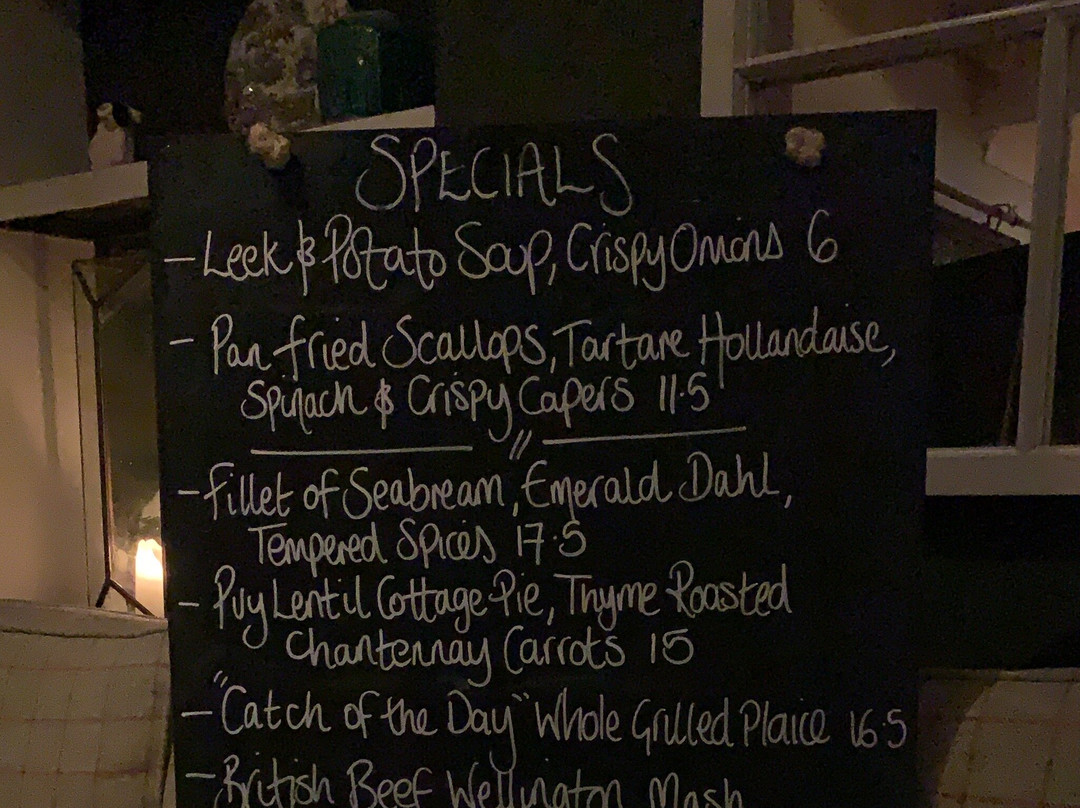 SPECIALS
- Leek & Potato Soup, Crispy Onions 6
- Pan fried Scallops, Tartare Hollandaise,
Spinach & Crispy Capers 11.5
//
- Fillet of Seabream, Emerald Dahl,
Tempered Spices 17.5
- Puy Lentil Cottage Pie, Thyme Roasted
Chantennay Carrots 15
- "Catch of the Day" Whole Grilled Plaice 16.5
- British Beef Wellington Mash